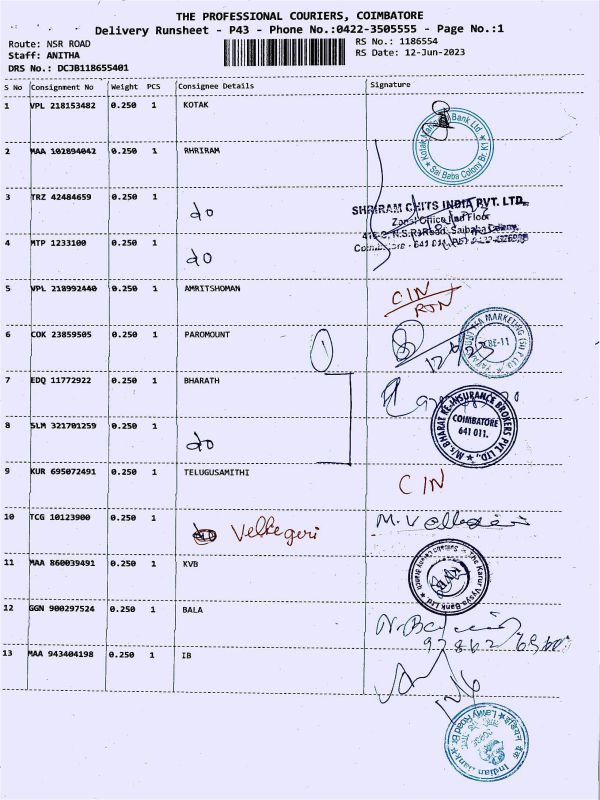 THE PROFESSIONAL COURIERS, COIMBATORE
Delivery Runsheet - P43 - Phone No.:0422-3505555 - Page No.:1
Route: NSR ROAD
Staff: ANITHA
DRS No.: DCJB118655401
RS No.: 1186554
RS Date: 12-Jun-2023
S No Consignment No Weight PCS Consignee Details Signature
1 VPL 218153482 0.250 1 KOTAK
Kotak Bank Ltd
Sai Baba Colony Br.
2 MAA 102894042 0.250 1 RHRIRAM
3 TRZ 42484659 0.250 1 do
SHRIRAM CHITS INDIA PVT. LTD.,
Zonal Office IInd Floor
N.S.R. Road, Saibaba Colony,
4 MTP 1233100 0.250 1 do
5 VPL 218992440 0.250 1 AMRITSHOMAN
CIN
RTN
6 COK 23859505 0.250 1 PAROMOUNT
1
MARKETING
CBE-11
7 EDQ 11772922 0.250 1 BHARATH
M/s. BHARAT RE-INSURANCE BROKERS PVT LTD.,
COIMBATORE
641 011.
8 SLM 321701259 0.250 1 do
9 KUR 695072491 0.250 1 TELUGUSAMITHI
CIN
10 TCG 10123900 0.250 1 Velkegeri
11 MAA 860039491 0.250 1 KVB
The Karur Vysya Bank Ltd
12 GGN 900297524 0.250 1 BALA
13 MAA 943404198 0.250 1 IB
Indian Bank
Lawly Road Br.